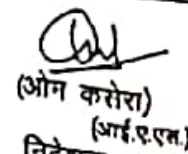 (ओम कसेरा)
(आई.ए.एस.)